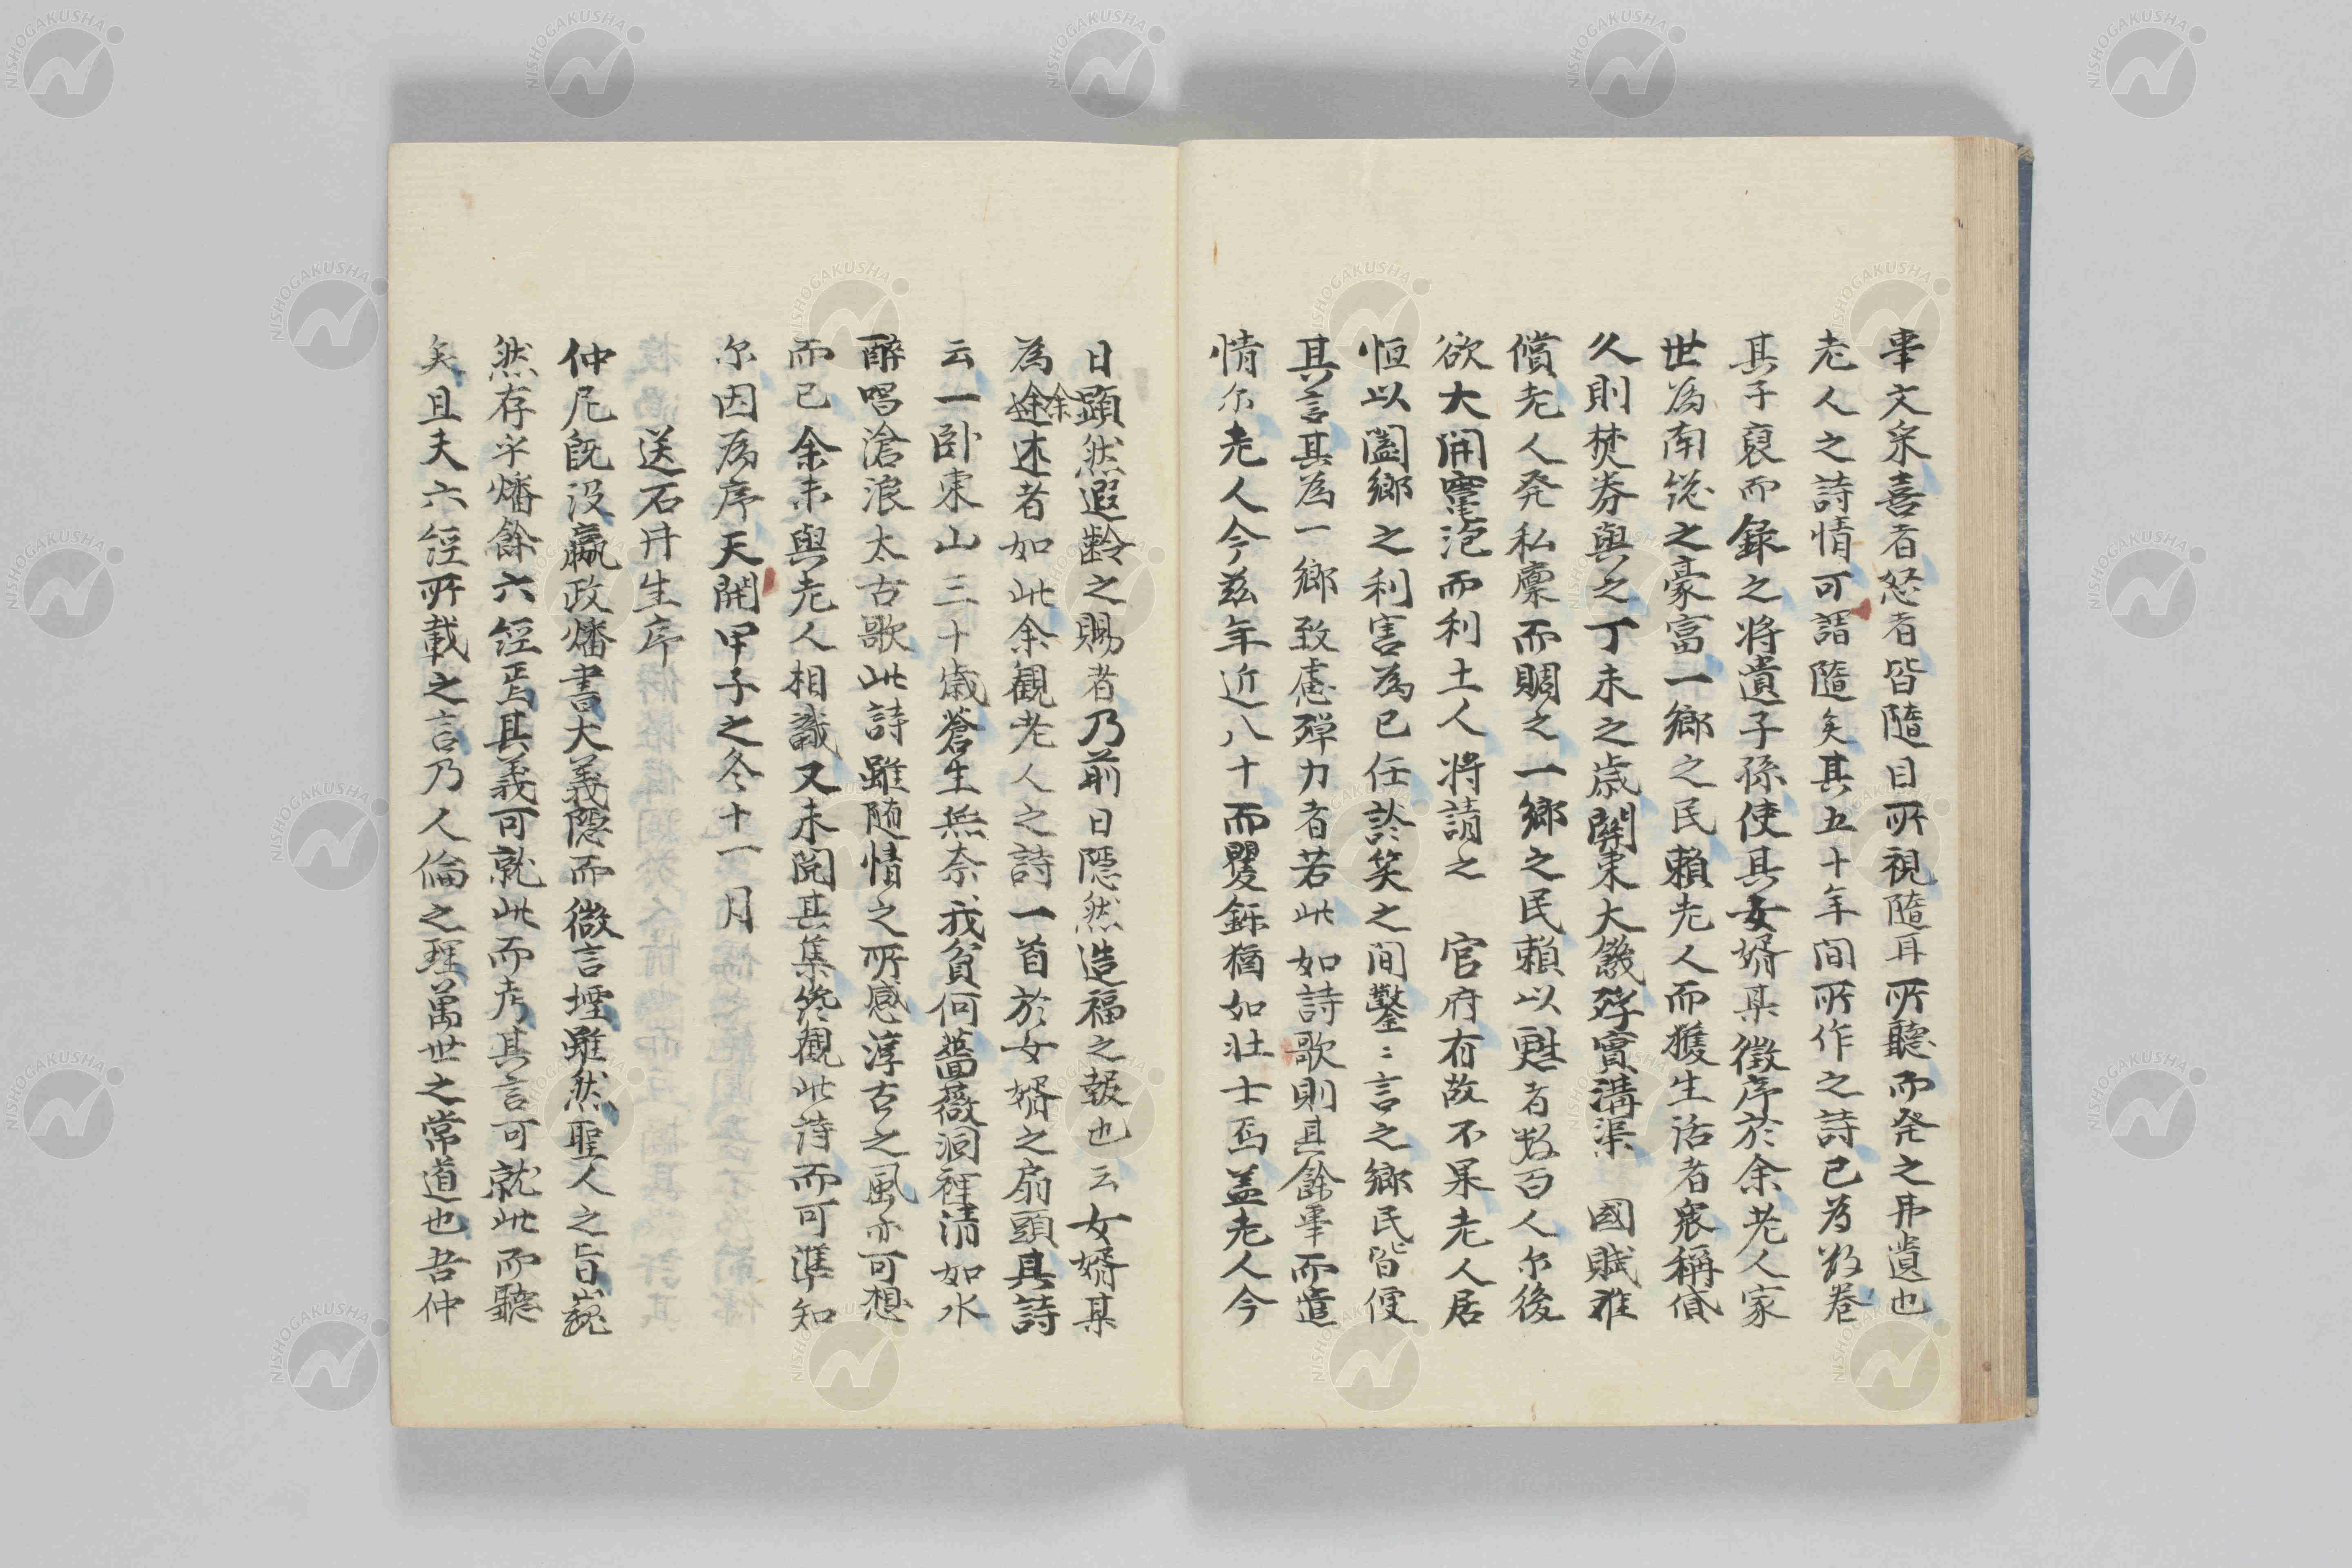 事文采喜者怒者皆隨目所視隨耳所聽而発之弗遺也
老人之詩情可謂隨矣其五十年間所作之詩已為数巻
其子裒而録之将遺子孫使其女婿某徴序於余老人家
世為南総之豪富一郷之民賴老人而獲生活者衆稱貸
久則焚券與之丁未之歳関東大饑殍實溝渠 國賦難
償老人発私稟而賙之一郷之民賴以甦者数百人尔後
欲大開罋沲而利土人将請之 官府有故不果老人居
恒以闔郷之利害為已任談笑之間鑿〻言之郷民皆便
其言其為一郷致慮殫力者若此如詩歌則其餘事而遣
情尓老人今茲年近八十而矍鑠猶如壮士焉盖老人今
日顕然遐齢之賜者乃前日隠然造福之報也云女婿某
為余述者如此余観老人之詩一首於女婿之扇頭其詩
云一卧東山三十歳蒼生無奈我貧何薔薇洞裡清如水
酔唱滄浪太古歌此詩雖随情之所感淳古之風亦可想
而已余未與老人相識又未閲其集終観此詩而可準知
尓因為序天開甲子之冬十一月
送石丹生序
仲尼既没嬴政燔書大義隠而微言堙雖然聖人之旨巍
然存乎燔餘六経焉其義可就此而考其言可就此而聽
矣且夫六経所載之言乃人倫之理萬世之常道也吾仲